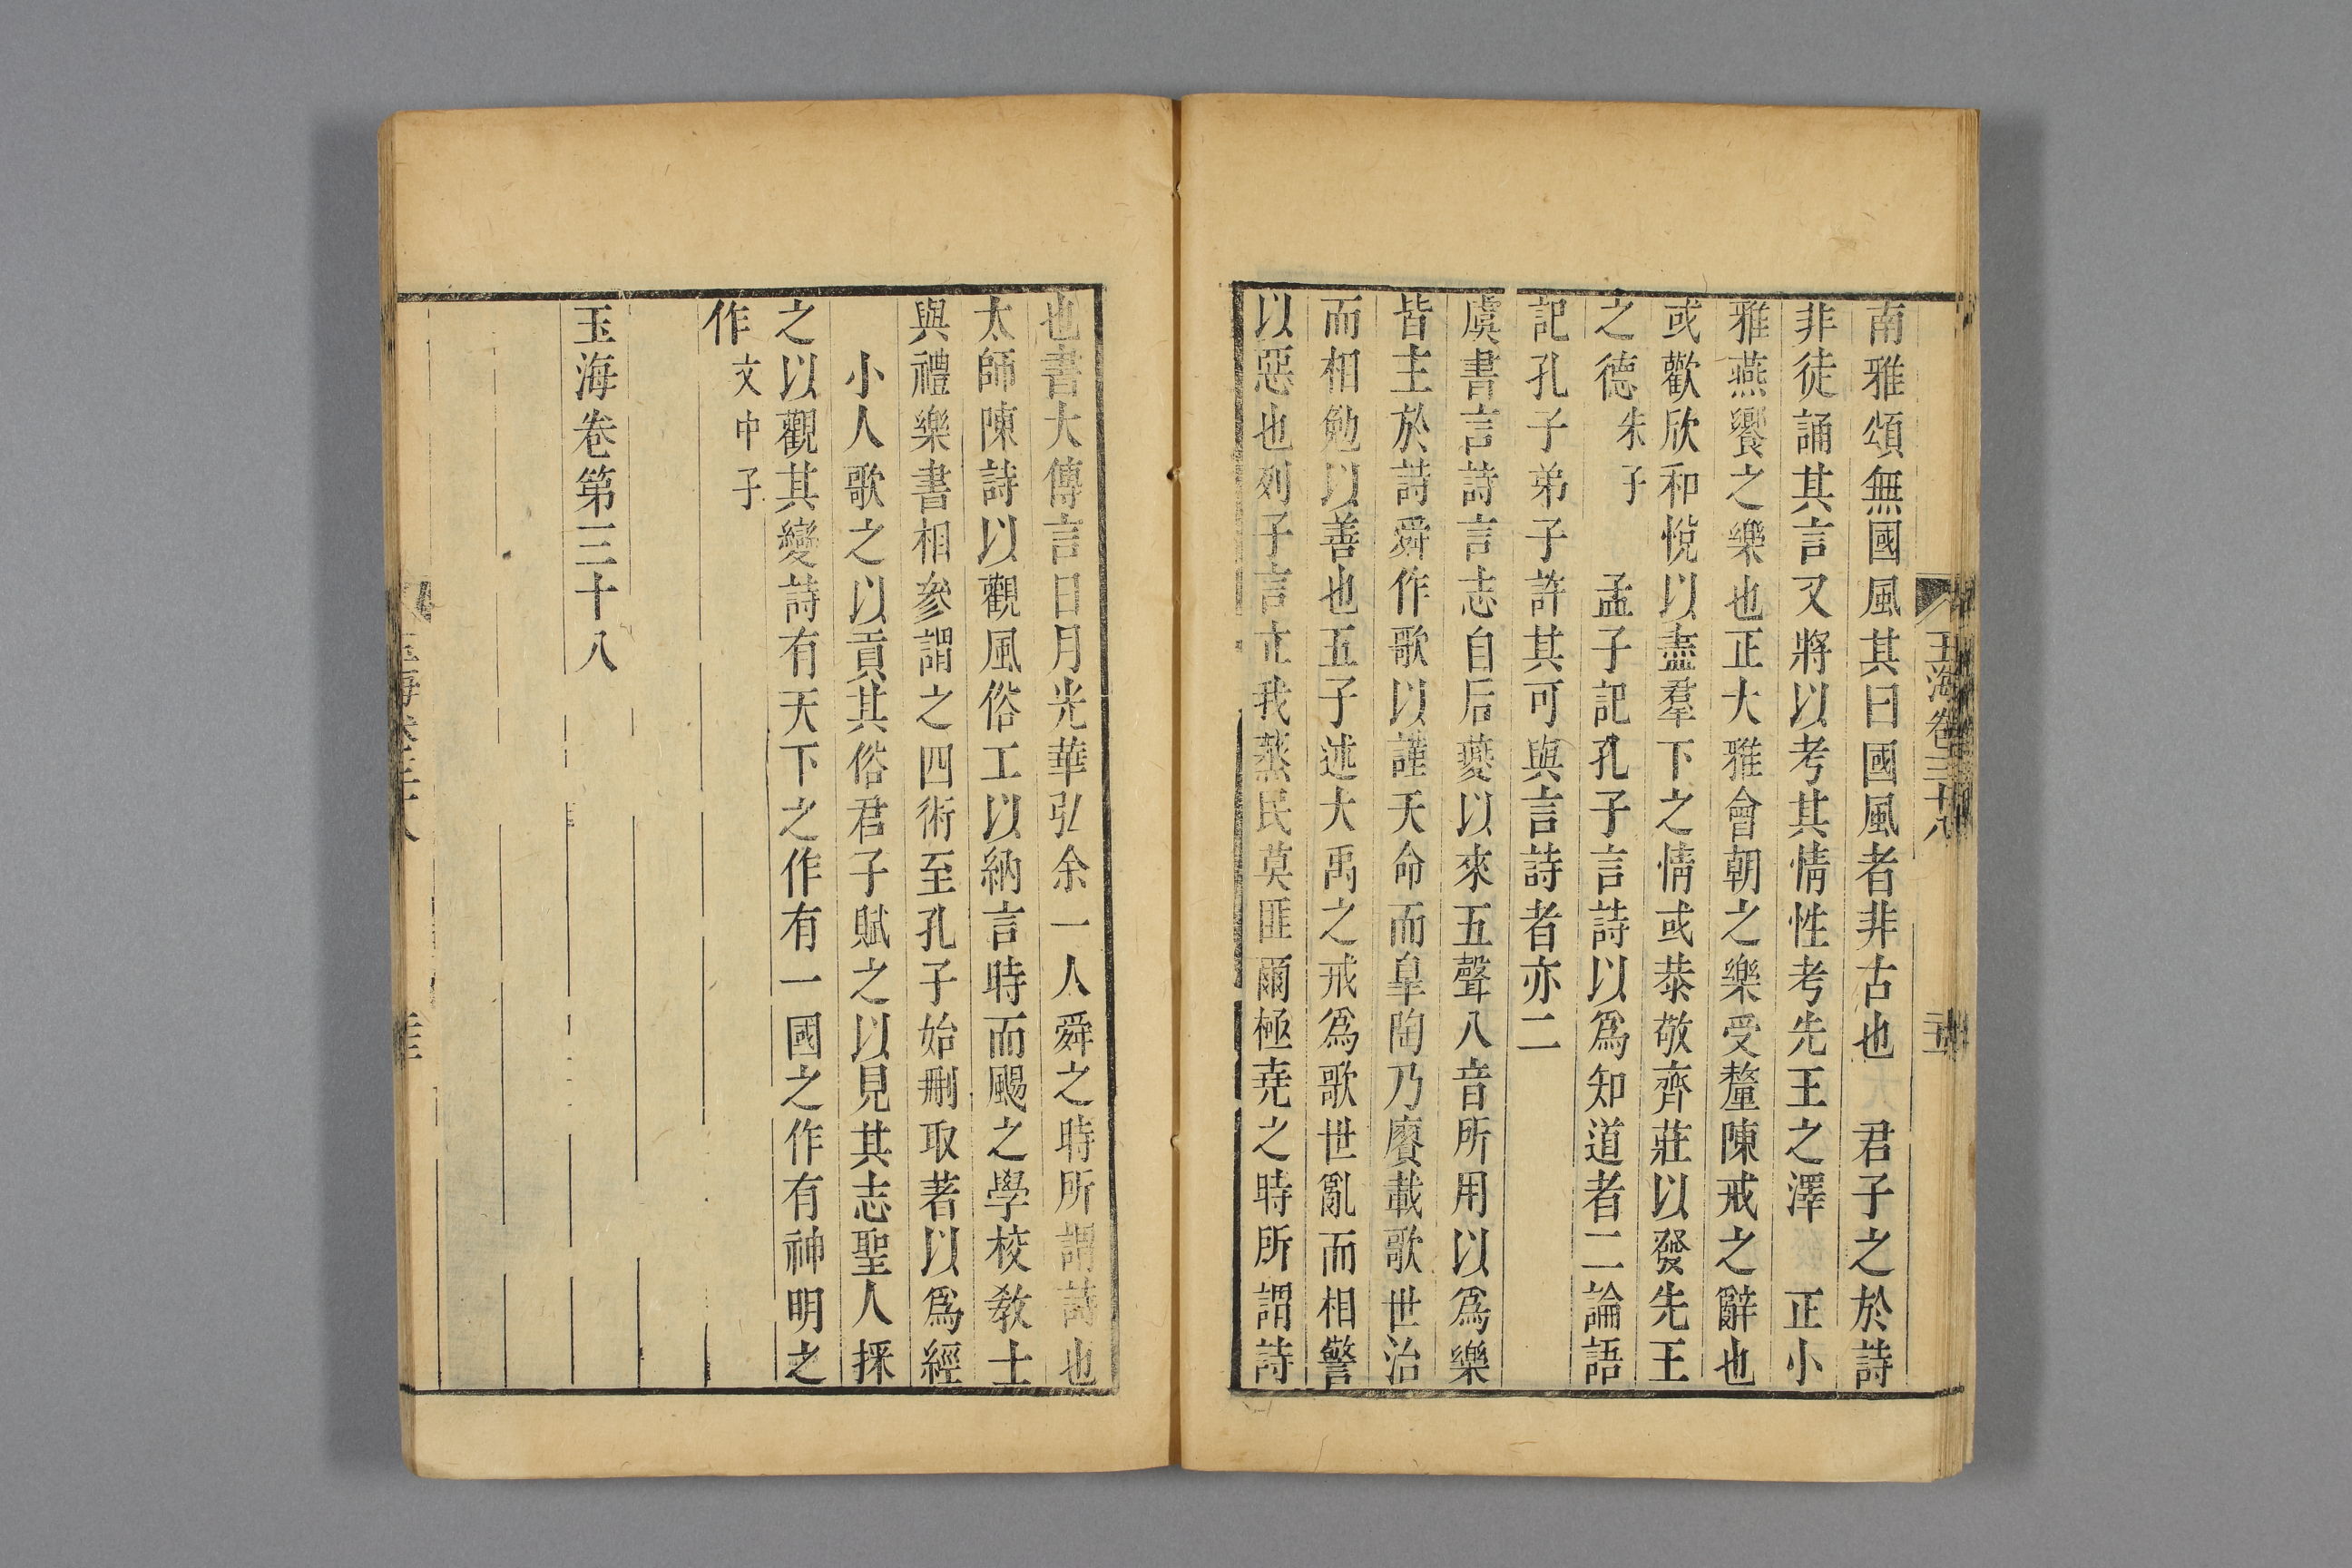 玉海卷三十八
南雅頌無國風其曰國風者非古也　君子之於詩
非徒誦其言又將以考其情性考先王之澤　正小
雅燕饗之樂也正大雅會朝之樂受釐陳戒之辭也
或歡欣和悅以盡羣下之情或恭敬齊莊以發先王
之德朱子　孟子記孔子言詩以爲知道者二論語
記孔子弟子許其可與言詩者亦二
虞書言詩言志自后夔以來五聲八音所用以爲樂
皆主於詩舜作歌以謹天命而皐陶乃賡載歌世治
而相勉以善也五子述大禹之戒爲歌世亂而相警
以惡也列子言立我蒸民莫匪爾極堯之時所謂詩
也書大傳言日月光華弘余一人舜之時所謂詩也
太師陳詩以觀風俗工以納言時而颺之學校敎士
與禮樂書相參謂之四術至孔子始刪取著以爲經
小人歌之以貢其俗君子賦之以見其志聖人採
之以觀其變詩有天下之作有一國之作有神明之
作文中子
玉海卷第三十八